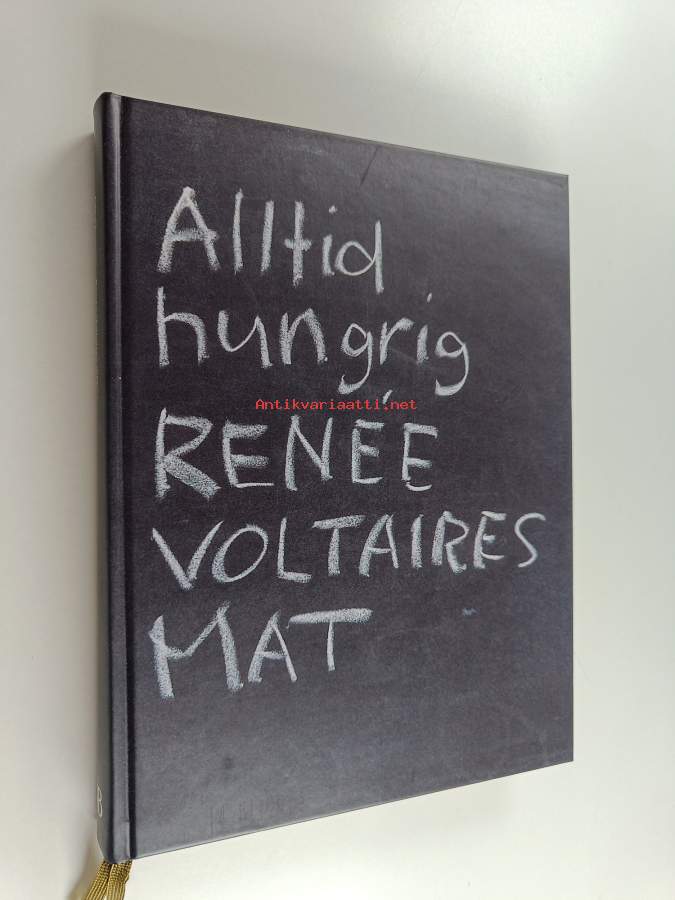 Alltid
hungrig
Antikvariaatti.net
RENÉE
VOLTAIRES
MAT
B